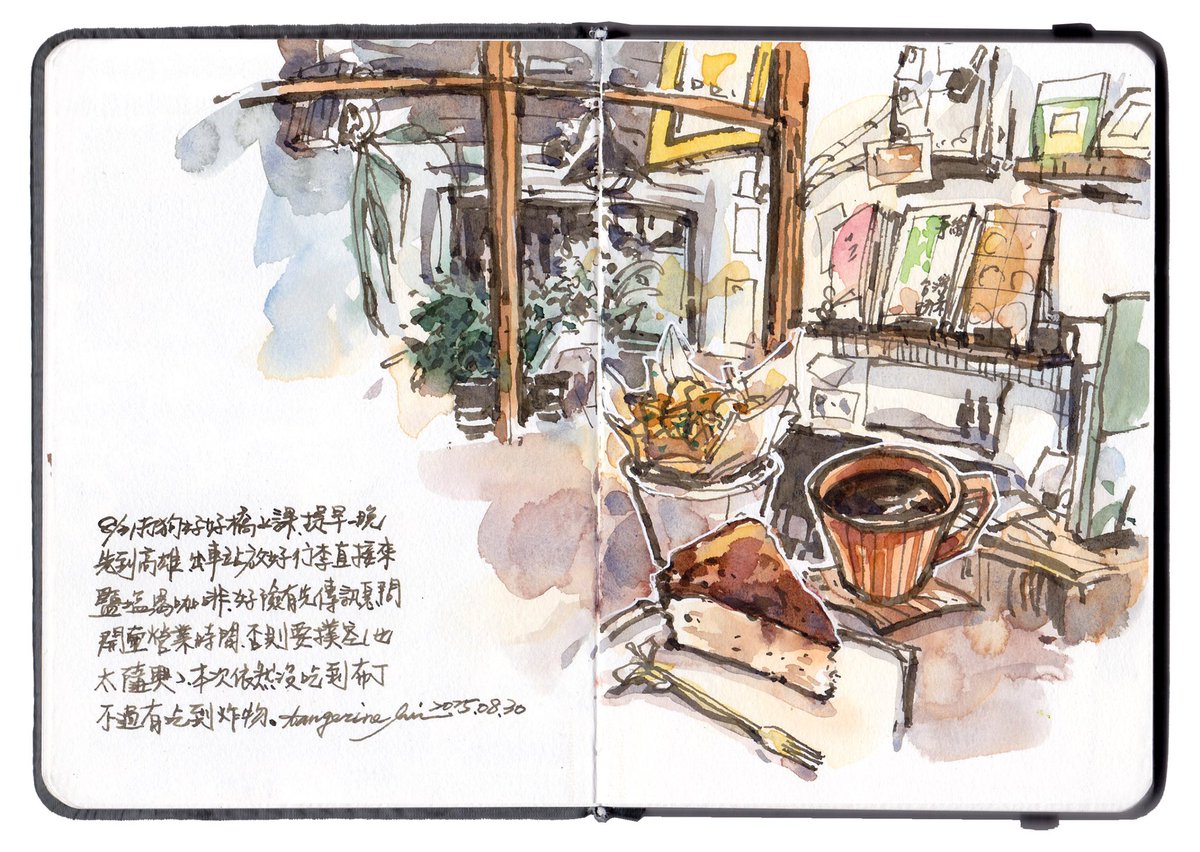 8/31 好好橋上課,提早一晚
先到高雄,出車站放好行李直接來
鹽埕 咖啡,好險有先傳訊息問
營業時間,否則要撲空(也
太隨興),本次依然沒吃到布丁
不過有吃到炸物。tangerine 2025.08.30
台灣